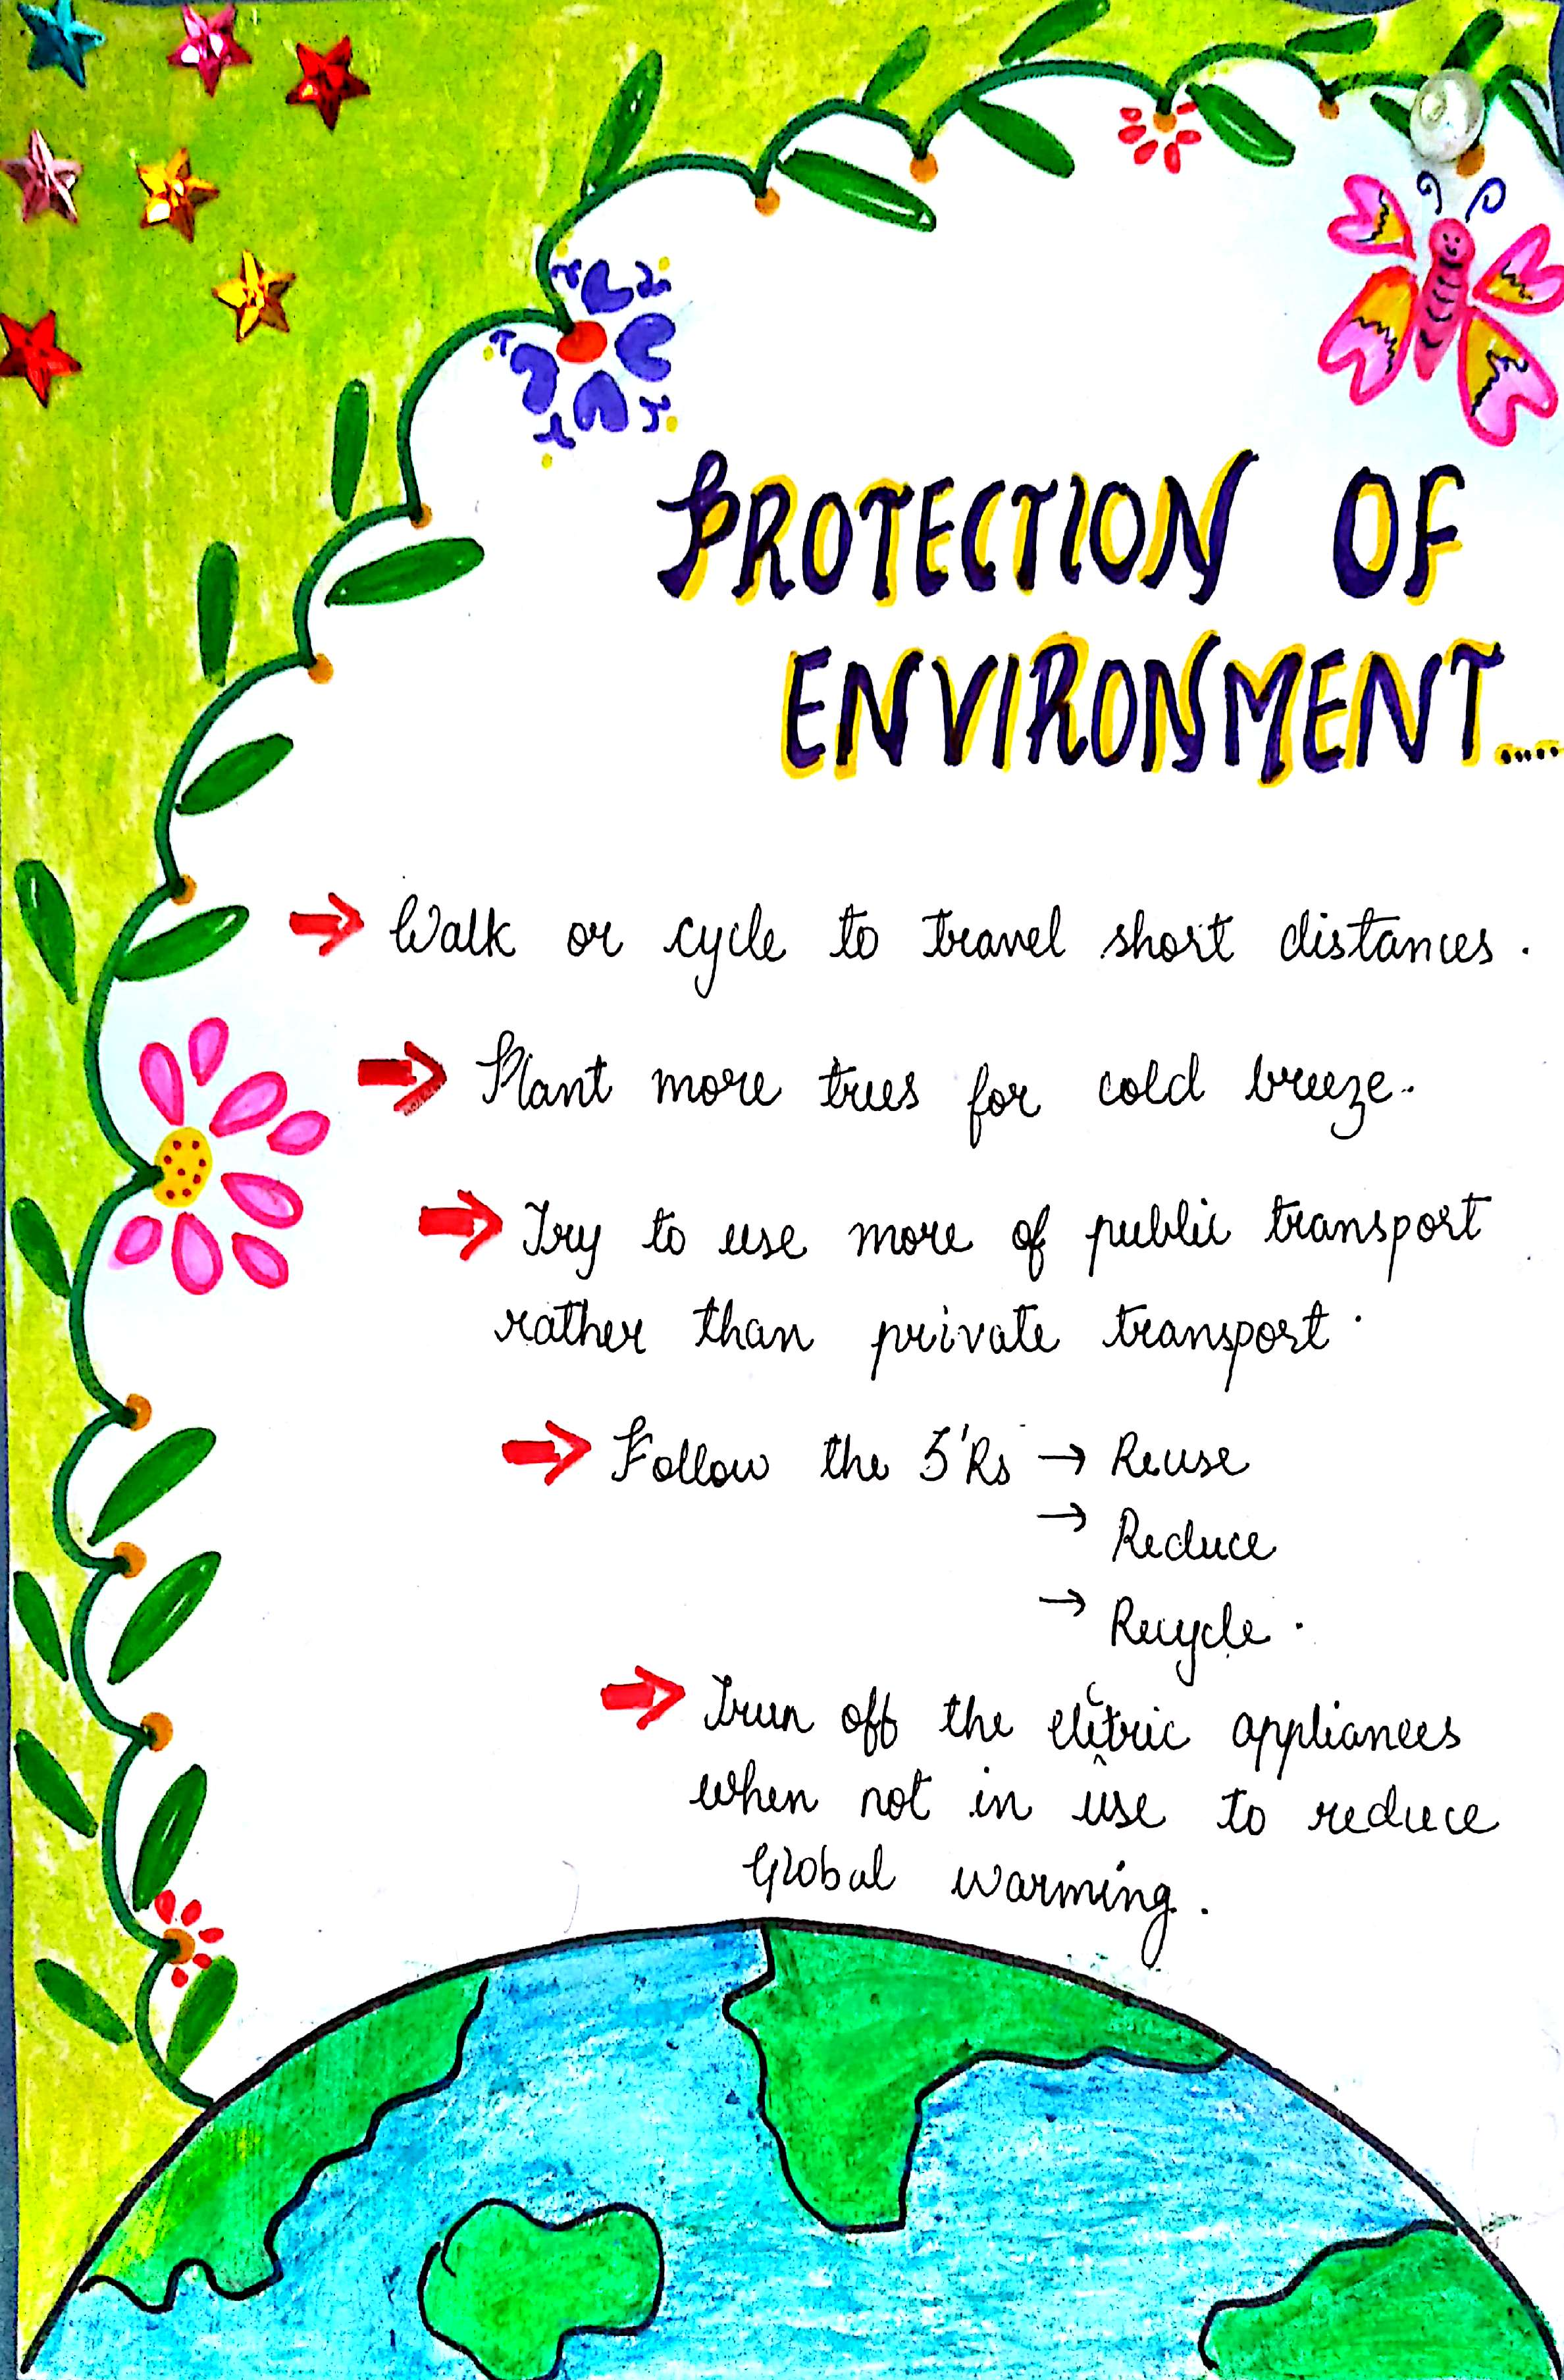 PROTECTION OF
ENVIRONMENT.....
→ Walk or cycle to travel short distances.
→ Plant more trees for cold breeze..
→ Try to use more of public transport
rather than private transport.
→ Follow the 3'Rs → Reuse
→ Reduce
→ Recycle.
→ Trun off the elctric appliances
when not in use to reduce
Global warming.